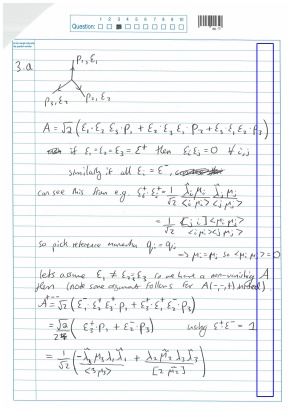 Question: 1 2 3 4 5 6 7 8 9 10
3.a
p₁, ε₁
p₃, ε₃ p₂, ε₂
A = √2 (ε₁·ε₂ ε₃·p₁ + ε₂·ε₃ ε₁·p₂ + ε₃·ε₁ ε₂·p₃)
if ε₁=ε₂=ε₃=ε⁺ then εᵢεⱼ=0 ∀ i,j
similarly if all εᵢ = ε⁻,
can see this from e.g. εᵢ⁺·εⱼ⁺ = 1/√2 λ̃ᵢμᵢ/<iμᵢ> λ̃ⱼμⱼ/<jμⱼ>
= 1/√2 [j i]<μᵢμⱼ>/<iμᵢ><jμⱼ>
so pick reference momenta qᵢ=qⱼ
→ μᵢ=μⱼ so <μᵢμⱼ>=0
lets assume ε₁ ≠ ε₂=ε₃ so we have a non-vanishing A
then (note same argument follows for A(-,-,+) instead)
A⁺⁻⁻ = √2 (ε₁⁻·ε₂⁺ ε₃⁺·p₁ + ε₃⁺ε₁⁻ ε₂⁺·p₃)
= √2 (ε₃⁺·p₁ + ε₂⁺·p₃) using ε⁺ε⁻ = 1
= 1/√2 (-λ̃₃μ₃λ₁λ̃₁/<3μ₃> + λ₂μ̃₂λ₃λ̃₃/[2μ̃₂])